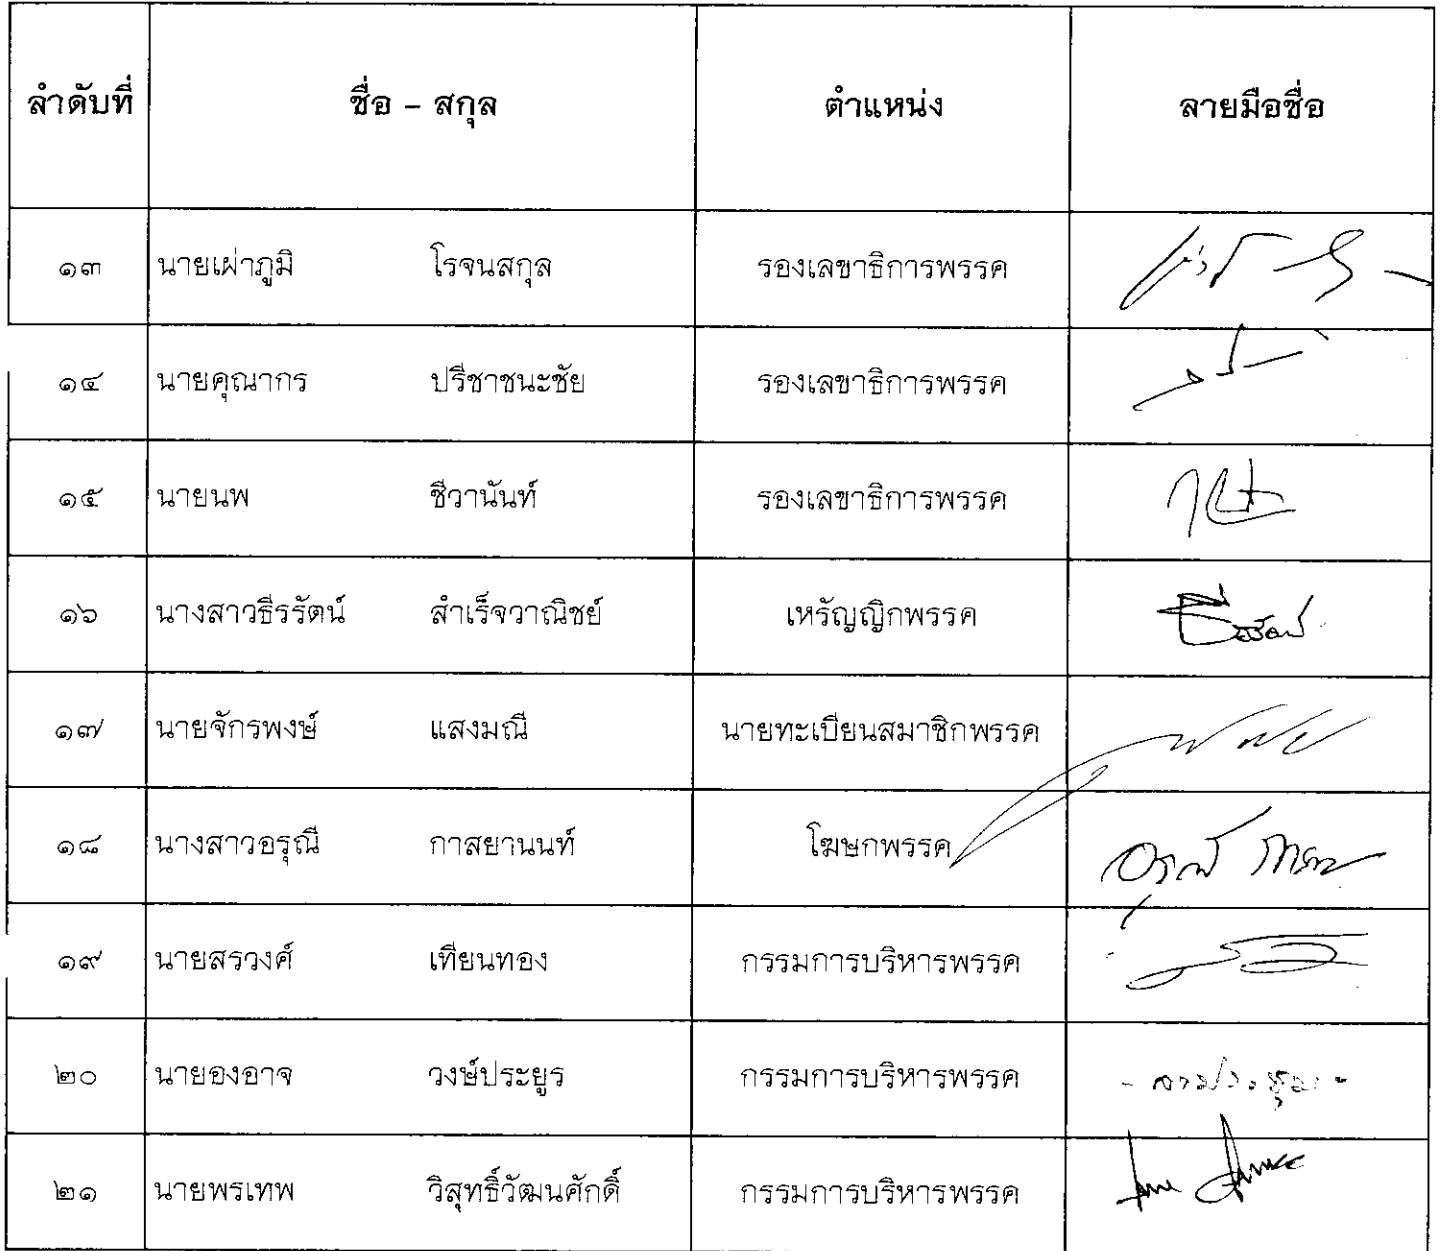 ลำดับที่ ชื่อ - สกุล ตำแหน่ง ลายมือชื่อ
๑๓ นายเผ่าภูมิ โรจนสกุล รองเลขาธิการพรรค
๑๔ นายคุณากร ปรีชาชนะชัย รองเลขาธิการพรรค
๑๕ นายนพ ชีวานันท์ รองเลขาธิการพรรค
๑๖ นางสาวธีรรัตน์ สำเร็จวาณิชย์ เหรัญญิกพรรค
๑๗ นายจักรพงษ์ แสงมณี นายทะเบียนสมาชิกพรรค
๑๘ นางสาวอรุณี กาสยานนท์ โฆษกพรรค
๑๙ นายสรวงศ์ เทียนทอง กรรมการบริหารพรรค
๒๐ นายองอาจ วงษ์ประยูร กรรมการบริหารพรรค
๒๑ นายพรเทพ วิสุทธิ์วัฒนศักดิ์ กรรมการบริหารพรรค